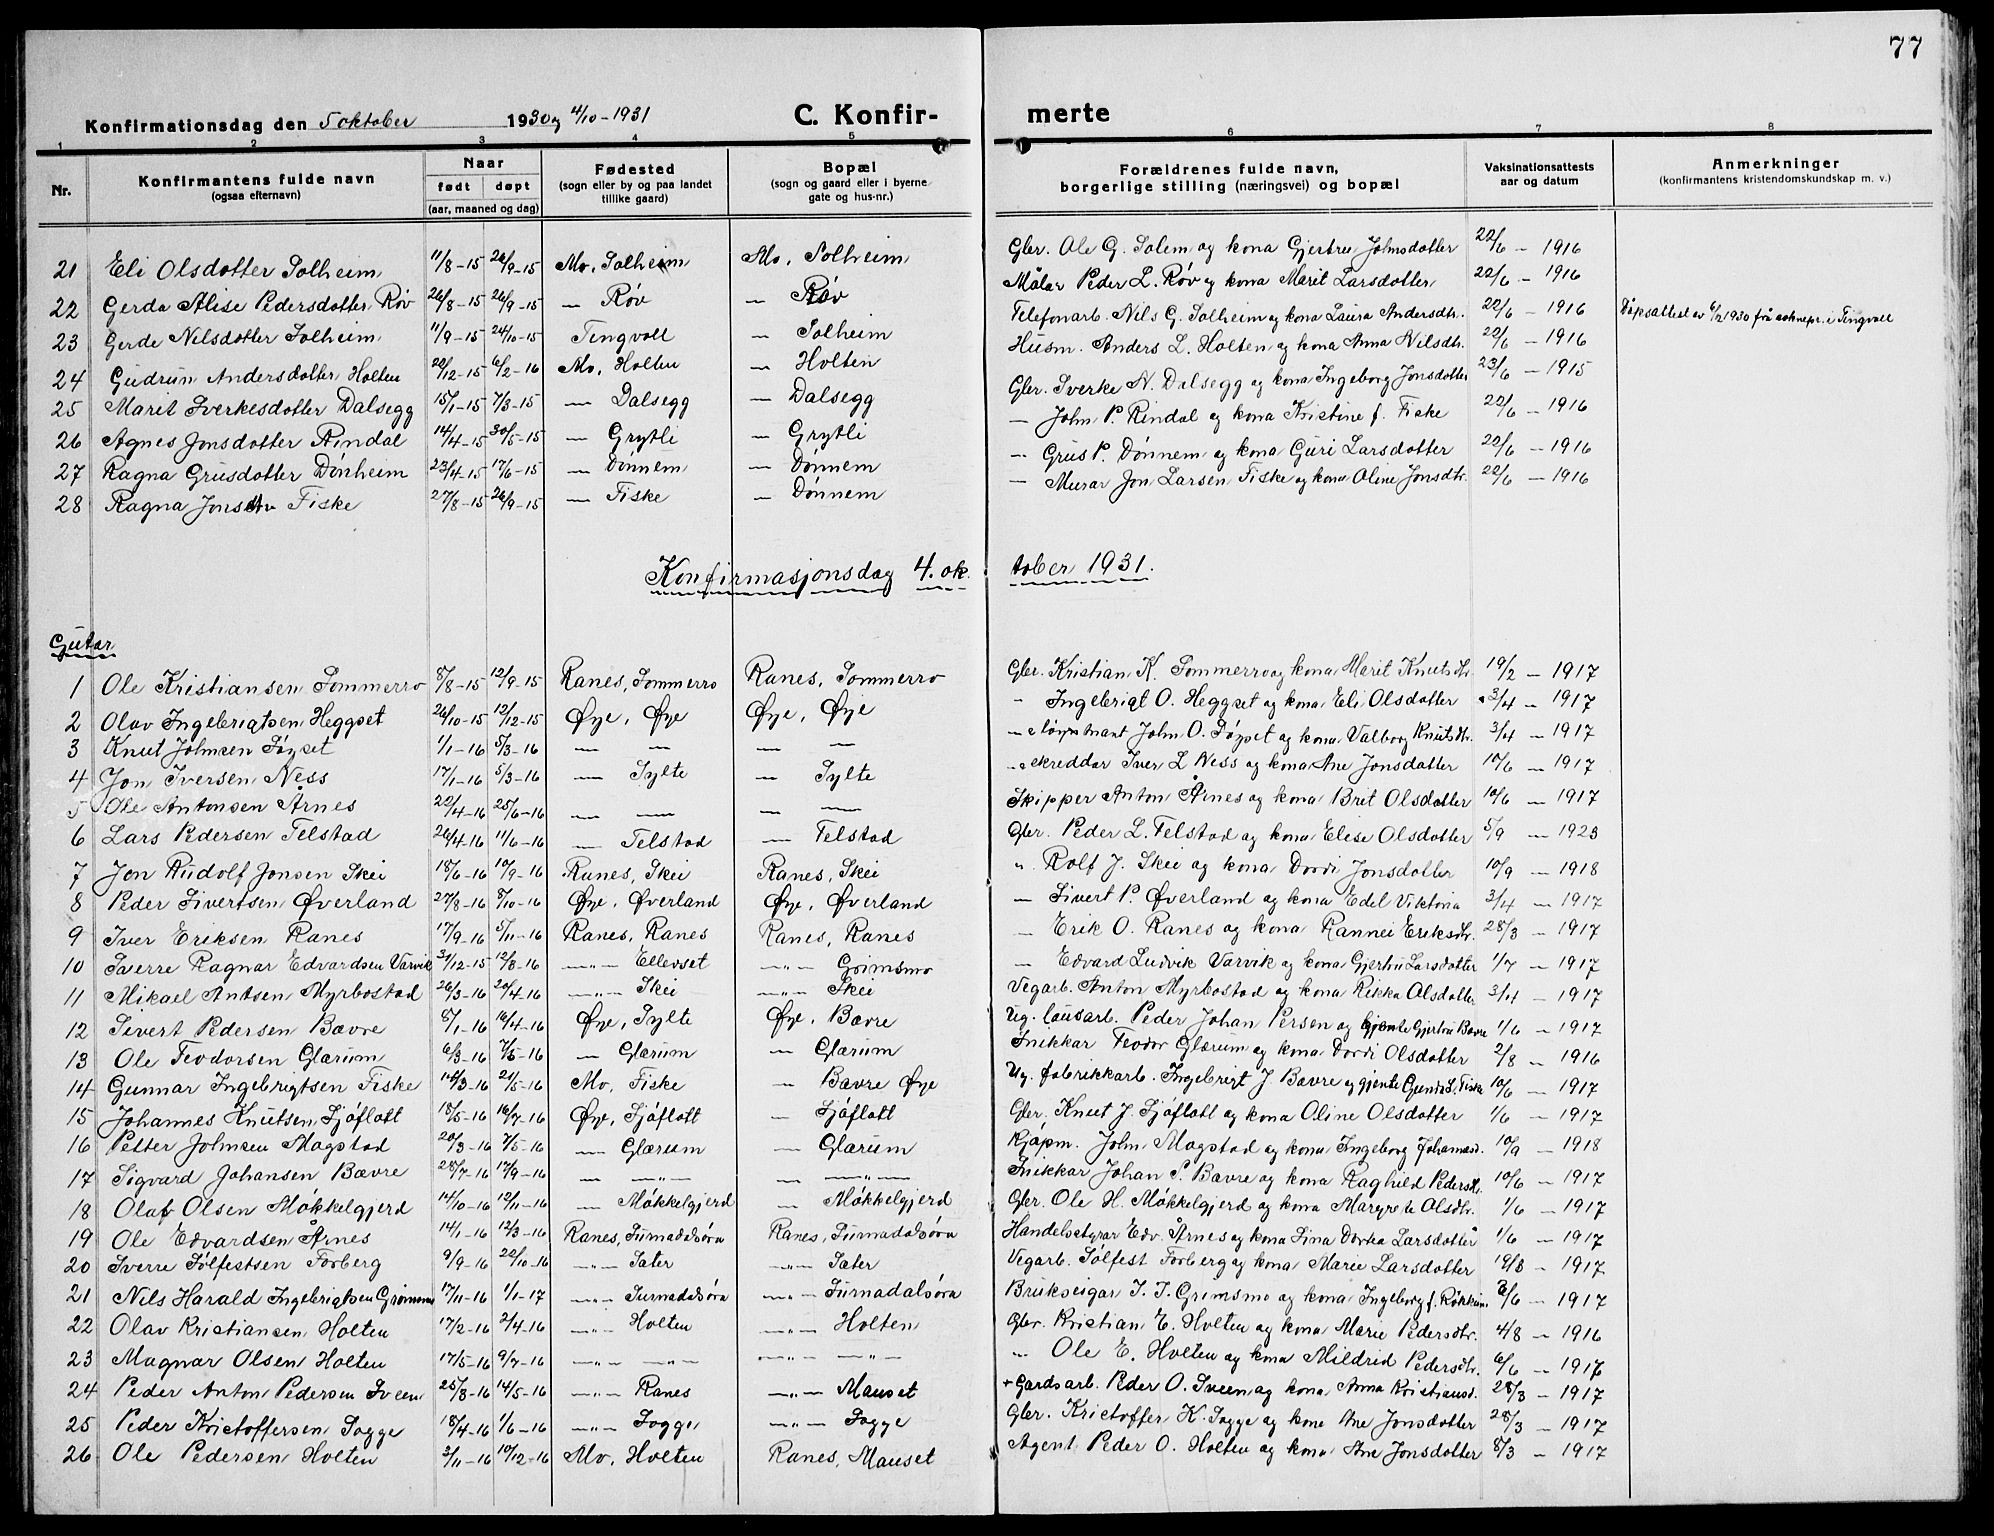 77
Konfirmationsdag den 5 oktober 1930 og 4/10-1931 C. Konfirmerte
1 2 3 4 5 6 7 8
Nr. Konfirmantens fulde navn (ogsaa efternavn) Naar født døpt (aar, maaned og dag) Fødested (sogn eller by og paa landet tillike gaard) Bopæl (sogn og gaard eller i byerne gate og hus-nr.) Forældrenes fulde navn, borgerlige stilling (næringsvei) og bopæl Vaksinationsattests aar og datum Anmerkninger (konfirmantens kristendomskundskap m. v.)
21 Eli Olsdotter Solheim 11/8-15 26/9-15 Mo, Solheim Mo, Solheim Gbr. Ole G. Solem og kona Gjertru Johnsdotter 22/6 - 1916
22 Gerda Alise Pedersdotter Røv 26/8-15 26/9-15 — Røv — Røv Målar Peder L. Røv og kona Marit Larsdotter 22/6 - 1916
23 Gerde Nilsdotter Solheim 11/9-15 24/10-15 Tengvoll — Solheim Telefonarb. Nils G. Solheim og kona Laura Andersdtr. 22/6 - 1916 Dåpsattest av 6/2 1930 frå soknepr. i Tingvoll
24 Gudrun Andersdotter Holten 20/12-15 6/2-16 Mo, Holten — Holten Husm. Anders L. Holten og kona Anna Nilsdtr. 22/6 - 1916
25 Marit Sverkesdotter Dalsegg 15/1-15 7/3-15 — Dalsegg — Dalsegg Gbr. Sverke N. Dalsegg og kona Ingeborg Jonsdotter 23/6 - 1915
26 Agnes Jonsdotter Rindal 14/4-15 30/5-15 — Grytli — Grytli — John P. Rindal og kona Kristine f. Fiske 22/6 - 1916
27 Ragna Grusdotter Dønheim 23/4-15 17/6-15 — Dønnem — Dønnem — Grus P. Dønnem og kona Guri Larsdotter 22/6 - 1916
28 Ragna Jonsdtr Fiske 27/8-15 26/9-15 — Fiske — Dønnem — Murar Jon Larsen Fiske og kona Oline Jonsdtr. 22/6 - 1916
Konfirmasjonsdag 4. oktober 1931.
Gutar
1 Ole Kristiansen Sommerro 8/8-15 12/9-15 Ranes, Sommerro Ranes, Sommerro Gbr. Kristian K. Sommerro og kona Marit Knutsdtr. 19/2 - 1917
2 Olav Ingebrigtsen Heggset 26/10-15 12/12-15 Øye, Øye Øye, Øye " Ingebrigt O. Heggset og kona Eli Olsdotter 3/4 - 1917
3 Knut Johnsen Søyset 1/1-16 5/3-16 — — — — John O. Søyset og kona Valborg Knutsdtr. 3/4 - 1917
4 Jon Iversen Ness 17/1-16 5/3-16 — Sylte — Sylte skreddar Iver L Ness og kona Ane Jonsdotter 10/6 - 1917
5 Ole Antonsen Årnes 22/4-16 25/6-16 — — — — Skipper Anton Årnes og kona Brit Olsdotter 10/6 - 1917
6 Lars Pedersen Telstad 26/4-16 11/6-16 — Telstad — Telstad Gbr. Peder L. Telstad og kona Elise Olsdotter 5/9 - 1923
7 Jon Rudolf Jonsen Skei 18/6-16 10/9-16 Ranes, Skei Ranes, Skei " Rolf J. Skei og kona Dordi Jonsdotter 10/9 - 1918
8 Peder Sivertsen Øverland 27/8-16 8/10-16 Øye, Øverland Øye, Øverland — Sivert P. Øverland og kona Edel Viktoria 3/4 - 1917
9 Iver Eriksen Ranes 17/9-16 5/11-16 Ranes, Ranes Ranes, Ranes — Erik O. Ranes og kona Rannei Eriksdtr. 28/3 - 1917
10 Sverre Ragnar Edvardsen Varvik 31/12-15 12/3-16 —"— Ellevset —"— Grimsmo — Edvard Ludvik Varvik og kona Gjertru Larsdotter 1/7 - 1917
11 Mikael Antsen Myrbostad 26/3-16 20/4-16 —"— Skei —"— Skei Vegarb. Anton Myrbostad og kona Rikka Olsdotter 3/4 - 1917
12 Sivert Pedersen Bævre 8/1-16 16/4-16 Øye, Sylte Øye, Bævre Ug. lausarb. Peder Johan Persen og gjente Gjertru Bævre 1/6 - 1917
13 Ole Teodorsen Glærum 6/3-16 7/5-16 — Glærum — Glærum Snikkar Teodor Glærum og kona Dordi Olsdotter 2/8 - 1916
14 Gunnar Ingebrigtsen Fiske 14/3-16 21/5-16 Mo, Fiske — Bævre Øye Ug. fabrikkarb. Ingebrigt J. Bævre og gjente Gunda L. Fiske 10/6 - 1917
15 Johannes Knutsen Sjøflott 18/5-16 16/7-16 Øye, Sjøflott — Sjøflott Gbr. Knut J. Sjøflott og kona Oline Olsdotter 1/6 - 1917
16 Petter Johnsen Magstad 20/3-16 7/5-16 — Glærum — Glærum Kjøpm. John Magstad og kona Ingeborg Johansd. 10/9 - 1918
17 Sigvard Johansen Bævre 28/7-16 17/9-16 — —"— — —"— Snikkar Johan S. Bævre og kona Raghild Pedersdtr. 10/6 - 1917
18 Olaf Olsen Møkkelgjerd 14/10-16 12/11-16 — Møkkelgjerd — Møkkelgjerd Gbr. Ole H. Møkkelgjerd og kona Margrete Olsdtr. 1/6 - 1917
19 Ole Edvardsen Årnes 14/1-16 12/3-16 Ranes, Surnadalsøra Ranes, Surnadalsøra Handelsstyrar Edv. Årnes og kona Lina Dortea Larsdotter 1/6 - 1917
20 Sverre Sølfestsen Forberg 9/9-16 22/10-16 —"— Sæter —"— Sæter Vegarb. Sølfest Forberg og kona Marie Larsdotter 19/8 - 1917
21 Nils Harald Ingebrigtsen Grimsmo 17/11-16 1/1-17 —"— Surnadalsøra —"— Surnadalsøra Brukseigar I. I. Grimsmo og kona Ingeborg f. Røkkum 3/6 - 1917
22 Olav Kristiansen Holten 17/2-16 2/4-16 —"— Holten —"— Holten Gbr. Kristian E. Holten og kona Marie Pedersdtr. 4/8 - 1916
23 Magnar Olsen Holten 17/5-16 9/7-16 —"— —"— —"— —"— " Ole E. Holten og kona Mildrid Pedersdtr. 6/6 - 1917
24 Peder Anton Pedersen Sveen 25/3-16 14/5-16 —"— Ranes —"— Mauset + Gardsarb. Peder O. Sveen og kona Anna Kristiansd. 28/3 - 1917
25 Peder Kristoffersen Sogge 18/4-16 1/6-16 —"— Sogge —"— Sogge Gbr. Kristoffer K. Sogge og kona Ane Jonsdotter 28/3 - 1917
26 Ole Pedersen Holten 3/11-16 10/12-16 Mo, Holten Ranes, Mauset Agent Peder O. Holten og kona Ane Jonsdotter 8/3 - 1917